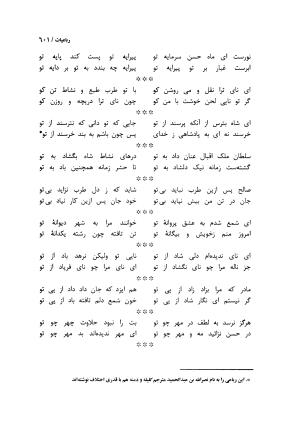 رباعیات / ۶۰۱
نورست ای ماه حسن سرمایه تو پیرایه تو پست کند پایه تو
ابرست غبار بر تو پیرایه تو پیرایه چه بندد به تو بر دایه تو
***
ای نای ترا نقل و می روشن کو با تو طرب طبع و نشاط تن کو
گر تو نایی لحن خوشت با من کو چون نای ترا دریچه و روزن کو
***
ای شاه بترس از آنکه پرسند از تو جایی که تو دانی که نترسند از تو
خرسند نه ای به پادشاهی ز خدای پس چون باشم به بند خرسند از تو*
***
سلطان ملک اقبال عنان داد به تو درهای نشاط شاه بگشاد به تو
گشته‌ست زمانه نیک دلشاد به تو تا حشر زمانه همچنین باد به تو
***
صالح پس ازین طرب نیاید بی‌تو شاید که ز دل طرب نزاید بی‌تو
جان در تن من بیش نیاید بی‌تو خود جان پس ازین کار نیاد بی‌تو
***
ای شمع شدم به عشق پروانهٔ تو خوانند مرا به شهر دیوانهٔ تو
امروز منم زخویش و بیگانهٔ تو تن تافته چون رشته یکدانهٔ تو
***
ای نای ندیده‌ام دلی شاد از تو نایی تو ولیکن نرهد باد از تو
جز ناله مرا چو نای نگشاد از تو ای نای مرا چو نای فریاد از تو
***
مادر که مرا بزاد زاد از پی تو هم ایزد که جان داد داد از پی تو
گر نیستم ای نگار شاد از پی تو خون شمع دلم تافته باد از پی تو
***
هرگز نرسد به لطف در مهر چو تو بت را نبود حلاوت چهر چو تو
در حسن نزائید مه و مهر چو تو ای مهر تو چو مهر و مهر چو تو
***
*. این رباعی را به نام نصرالله بن عبدالحمید مترجم کلیله و دمنه هم با قدری اختلاف نوشته‌اند